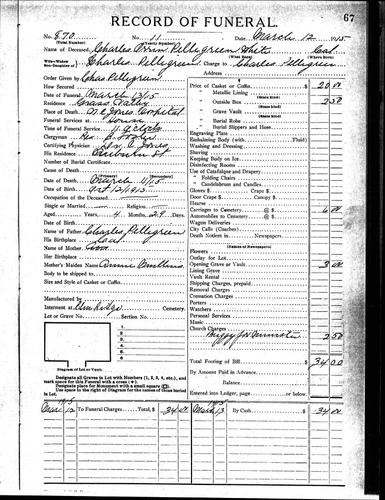 67
RECORD OF FUNERAL.
No. 870 No. 11 Date March 12 1915
(Total Number) (Yearly Number)
Name of Deceased Charles Pellegreen White Cal.
(What Race) (Where Born)
Charles Pellegreen Charge to Charles Pellegreen
Address
Order Given by Chas Pellegreen
How Secured
Date of Funeral March 13/15
Residence Grass Valley
Place of Death Jones Hospital
Funeral Services at House
Time of Funeral Service 11 o'clock
Clergyman Rev.
Certifying Physician Jones
His Residence Auburn St
Number of Burial Certificate
Cause of Death
Date of Death March 11/15
Date of Birth Oct 12/1913
Occupation of the Deceased
Single or Married Religion
Aged Years, 4 Months, 29 Days,
Name of Father Charles Pellegreen
His Birthplace Cal
Name of Mother
Her Birthplace
Mother's Maiden Name Annie
Body to be shipped to
Size and Style of Casket or Coffin
Manufactured by
Interment at Elm Ridge Cemetery.
Lot or Grave No. Section No.
1
2
3
4
5
6
Diagram of Lot or Vault
Designate all Graves in Lot with Numbers (1, 2, 3, 4, etc.), and
mark space for this Funeral with a cross (+).
Designate place for Monument with a small square (□).
Use space in the right of Diagram for the names of those buried
in Lot.
Price of Casket or Coffin 20 00
" Metallic Lining
(State kind)
" Outside Box 2 50
(State kind)
" Grave Vault
(State kind)
" Burial Robe
" Burial Slippers and Hose
Engraving Plate
Embalming Body (with Fluid)
Washing and Dressing
Shaving
Keeping Body on Ice
Disinfecting Rooms
Use of Catafalque and Drapery
" Folding Chairs
" Candelabrum and Candles
Gloves $ Crape $
Door Crape $ Canopy $
Hearse
Carriages to Cemetery @ $ 6 00
Automobiles to Cemetery @ $
Wagon Deliveries
City Calls (Coaches)
Death Notices in
(Names of Newspapers)
Flowers
Outlay for Lot
Opening Grave or Vault 3 00
Lining Grave
Vault Rental
Shipping Charges, prepaid
Removal Charges
Cremation Charges
Porters
Watchers
Personal Services
Music
Church Charges
2 50
Total Footing of Bill 34 00
By Amount Paid in Advance
Balance
Entered into Ledger, page or below.
1915 1915
12 To Funeral Charges Total, $ 34 00 March 13 By Cash $ 34 00